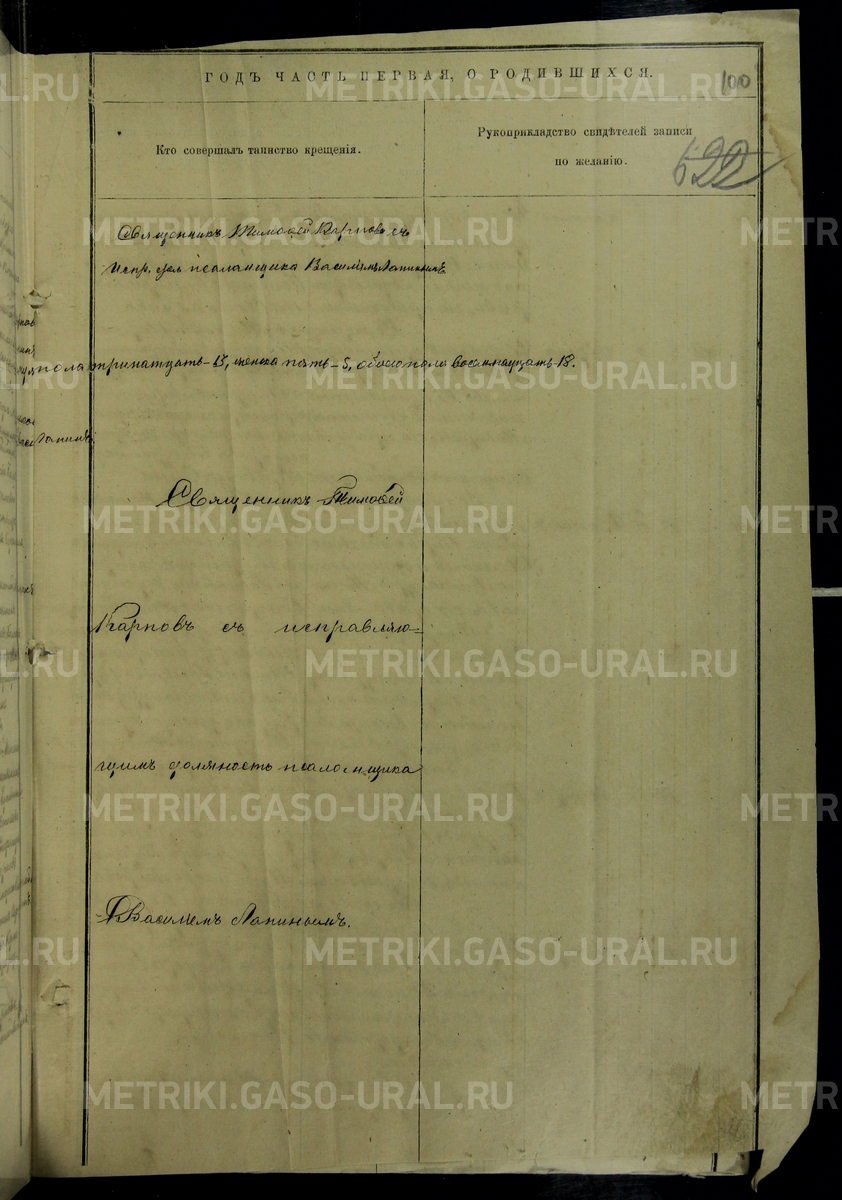 ГОДЪ ЧАСТЬ ПЕРВАЯ, О РОДИВШИХСЯ.
100
Кто совершалъ таинство крещенія.
Рукоприкладство свидѣтелей записи
по желанію.
522
Священникъ Тимоѳей Карповъ съ
Испр. дол псаломщика Василіемъ Лапинымъ
пола тринатцать-13, женска пять-5, обоего пола восемнадцать-18.
Священникъ Тимоѳей
Карповъ съ исправляю-
щимъ должность псаломщика
Василіемъ Лапинымъ.
METRIKI.GASO-URAL.RU